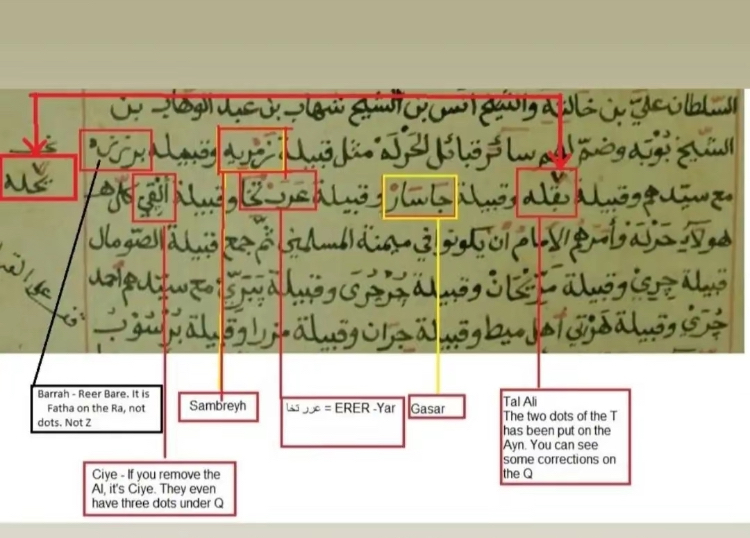 السلطان علي بن خالته والشيخ انس بن الشيخ شهاب بن عبد الوهاب بن
الشيخ بوتبه وضم لهم سائر قبائل الحرله مثل قبيلة زنبريه وقبيلة برزره
مع سيدهم وقبيلة بقله وقبيلة جاسار وقبيلة عرب تخا وقبيلة القي كل
يحله
هولاء حرله وأمرهم الامام ان يكونوا في ميمنة المسلمين ثم جمع قبيلة الصومال
قبيلة جري وقبيلة مريحان وقبيلة جرجري وقبيلة يبري مع سيدهم أحمد
جري وقبيلة هرتي أهل ميط وقبيلة جران وقبيلة مزرا وقبيلة برسوب
Barrah - Reer Bare. It is
Fatha on the Ra, not
dots. Not Z
Sambreyh
عرر تخا = ERER -Yar
Gasar
Tal Ali
The two dots of the T
has been put on the
Ayn. You can see
some corrections on
the Q
Ciye - If you remove the
Al, it's Ciye. They even
have three dots under Q